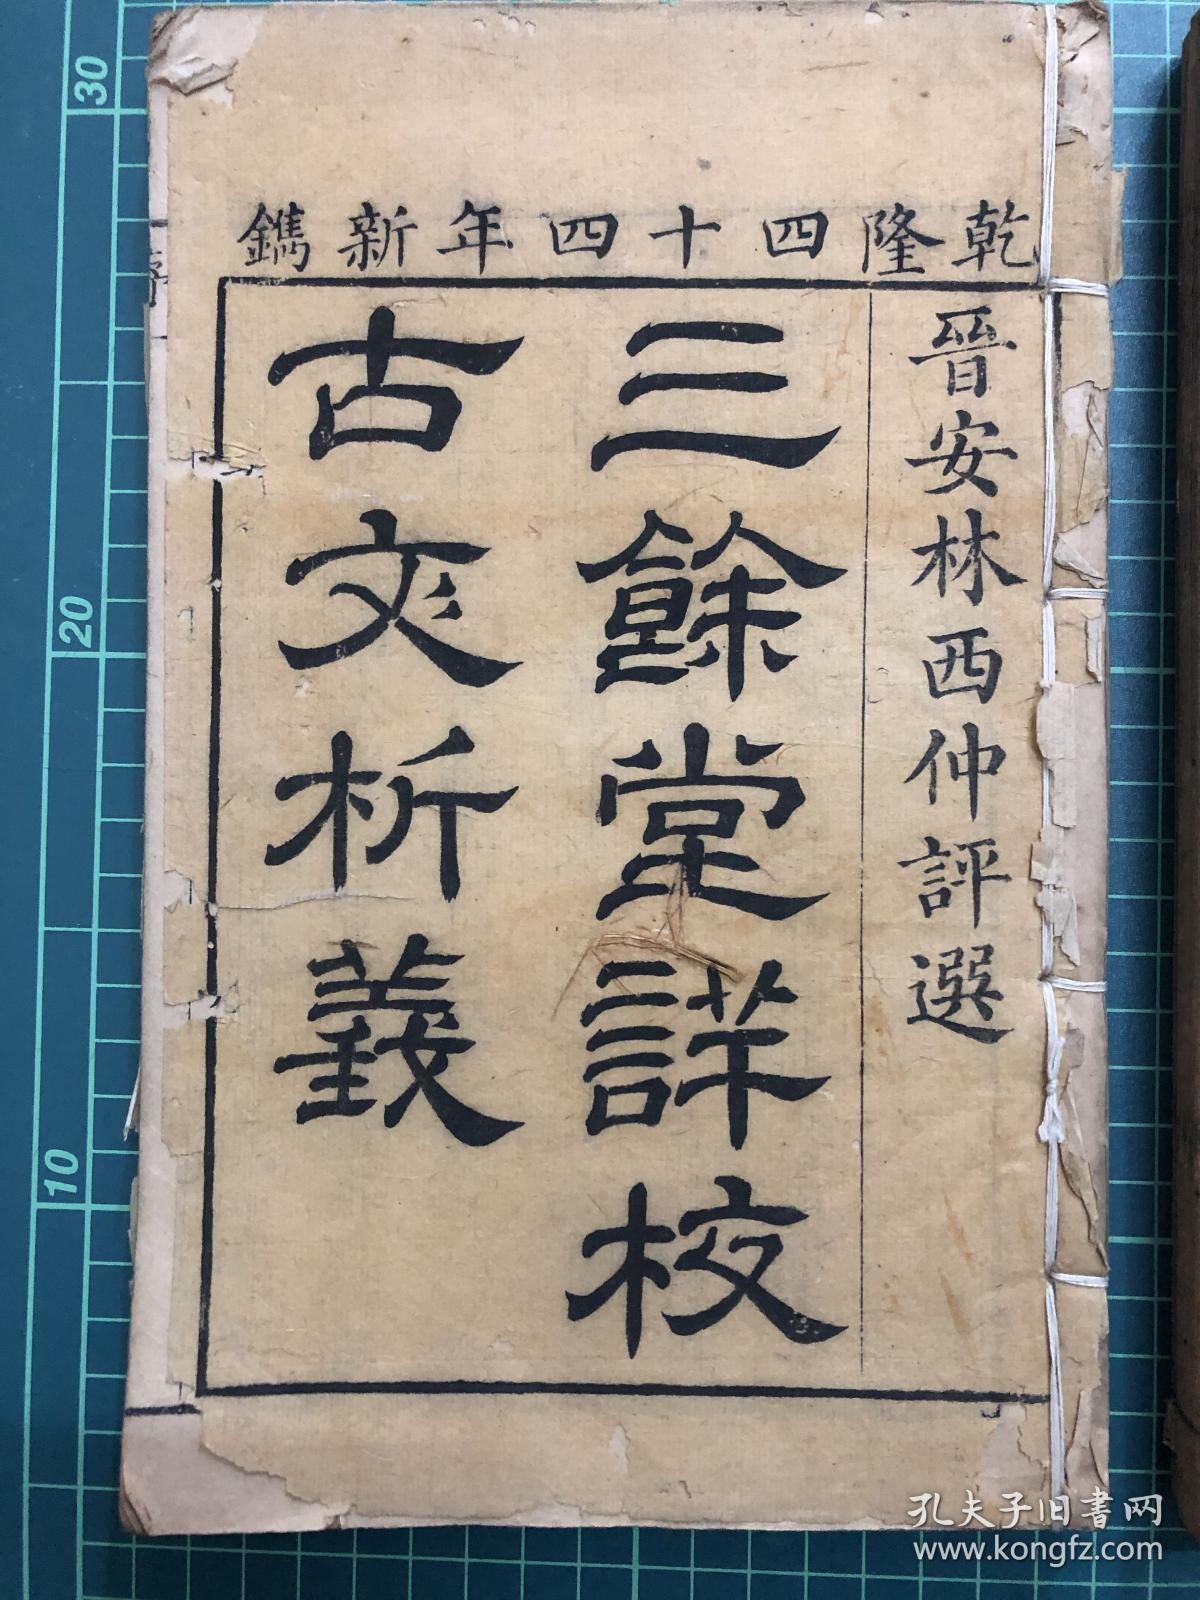 乾隆四十四年新鐫
晉安林西仲評選
三餘堂詳校
古文析義
30
20
10
孔夫子旧书网
www.kongfz.com